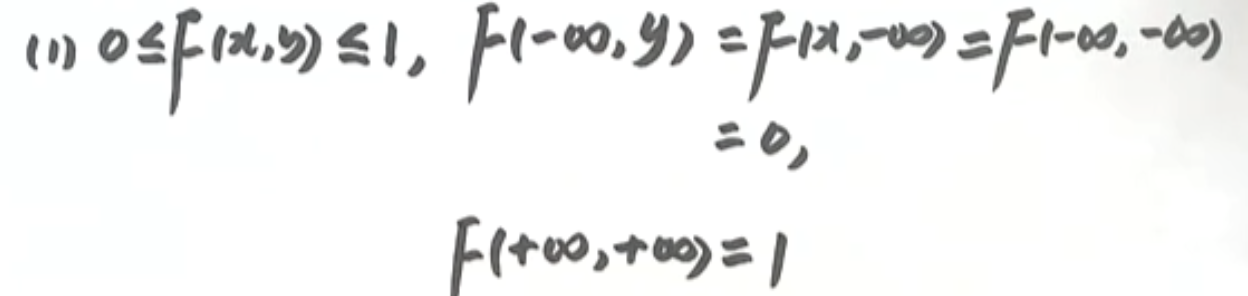 (1) 0≤F(x,y)≤1, F(-∞,y)=F(x,-∞)=F(-∞,-∞)
=0,
F(+∞,+∞)=1